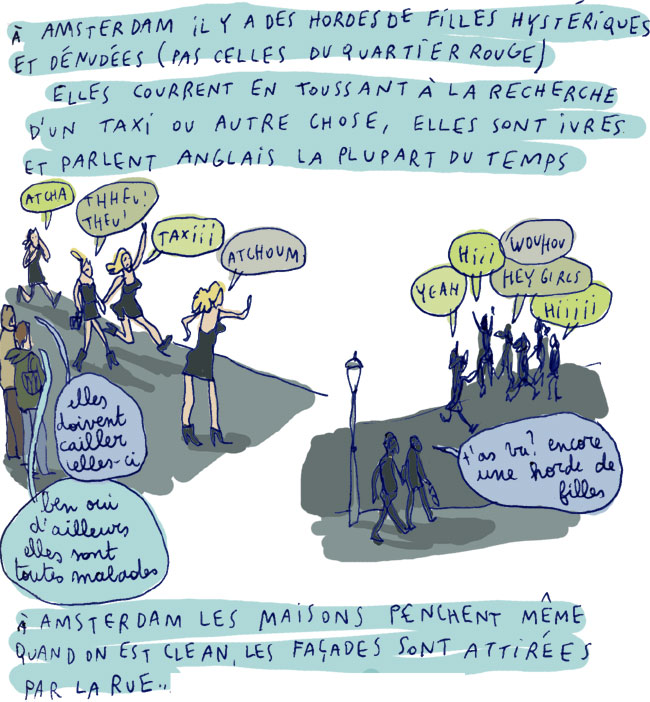 À AMSTERDAM IL Y A DES HORDES DE FILLES HYSTÉRIQUES
ET DÉNUDÉES (PAS CELLES DU QUARTIER ROUGE)
ELLES COURRENT EN TOUSSANT À LA RECHERCHE
D'UN TAXI OU AUTRE CHOSE, ELLES SONT IVRES
ET PARLENT ANGLAIS LA PLUPART DU TEMPS
ATCHA
THHEU!
THEU!
TAXIII
ATCHOUM
elles
doivent
cailler
celles-ci
ben oui
d'ailleurs
elles sont
toutes malades
YEAH
HIII
WOUHOU
HEY GIRLS
HIIIII
t'as vu? encore
une horde de
filles
À AMSTERDAM LES MAISONS PENCHENT MÊME
QUAND ON EST CLEAN, LES FAÇADES SONT ATTIRÉES
PAR LA RUE..